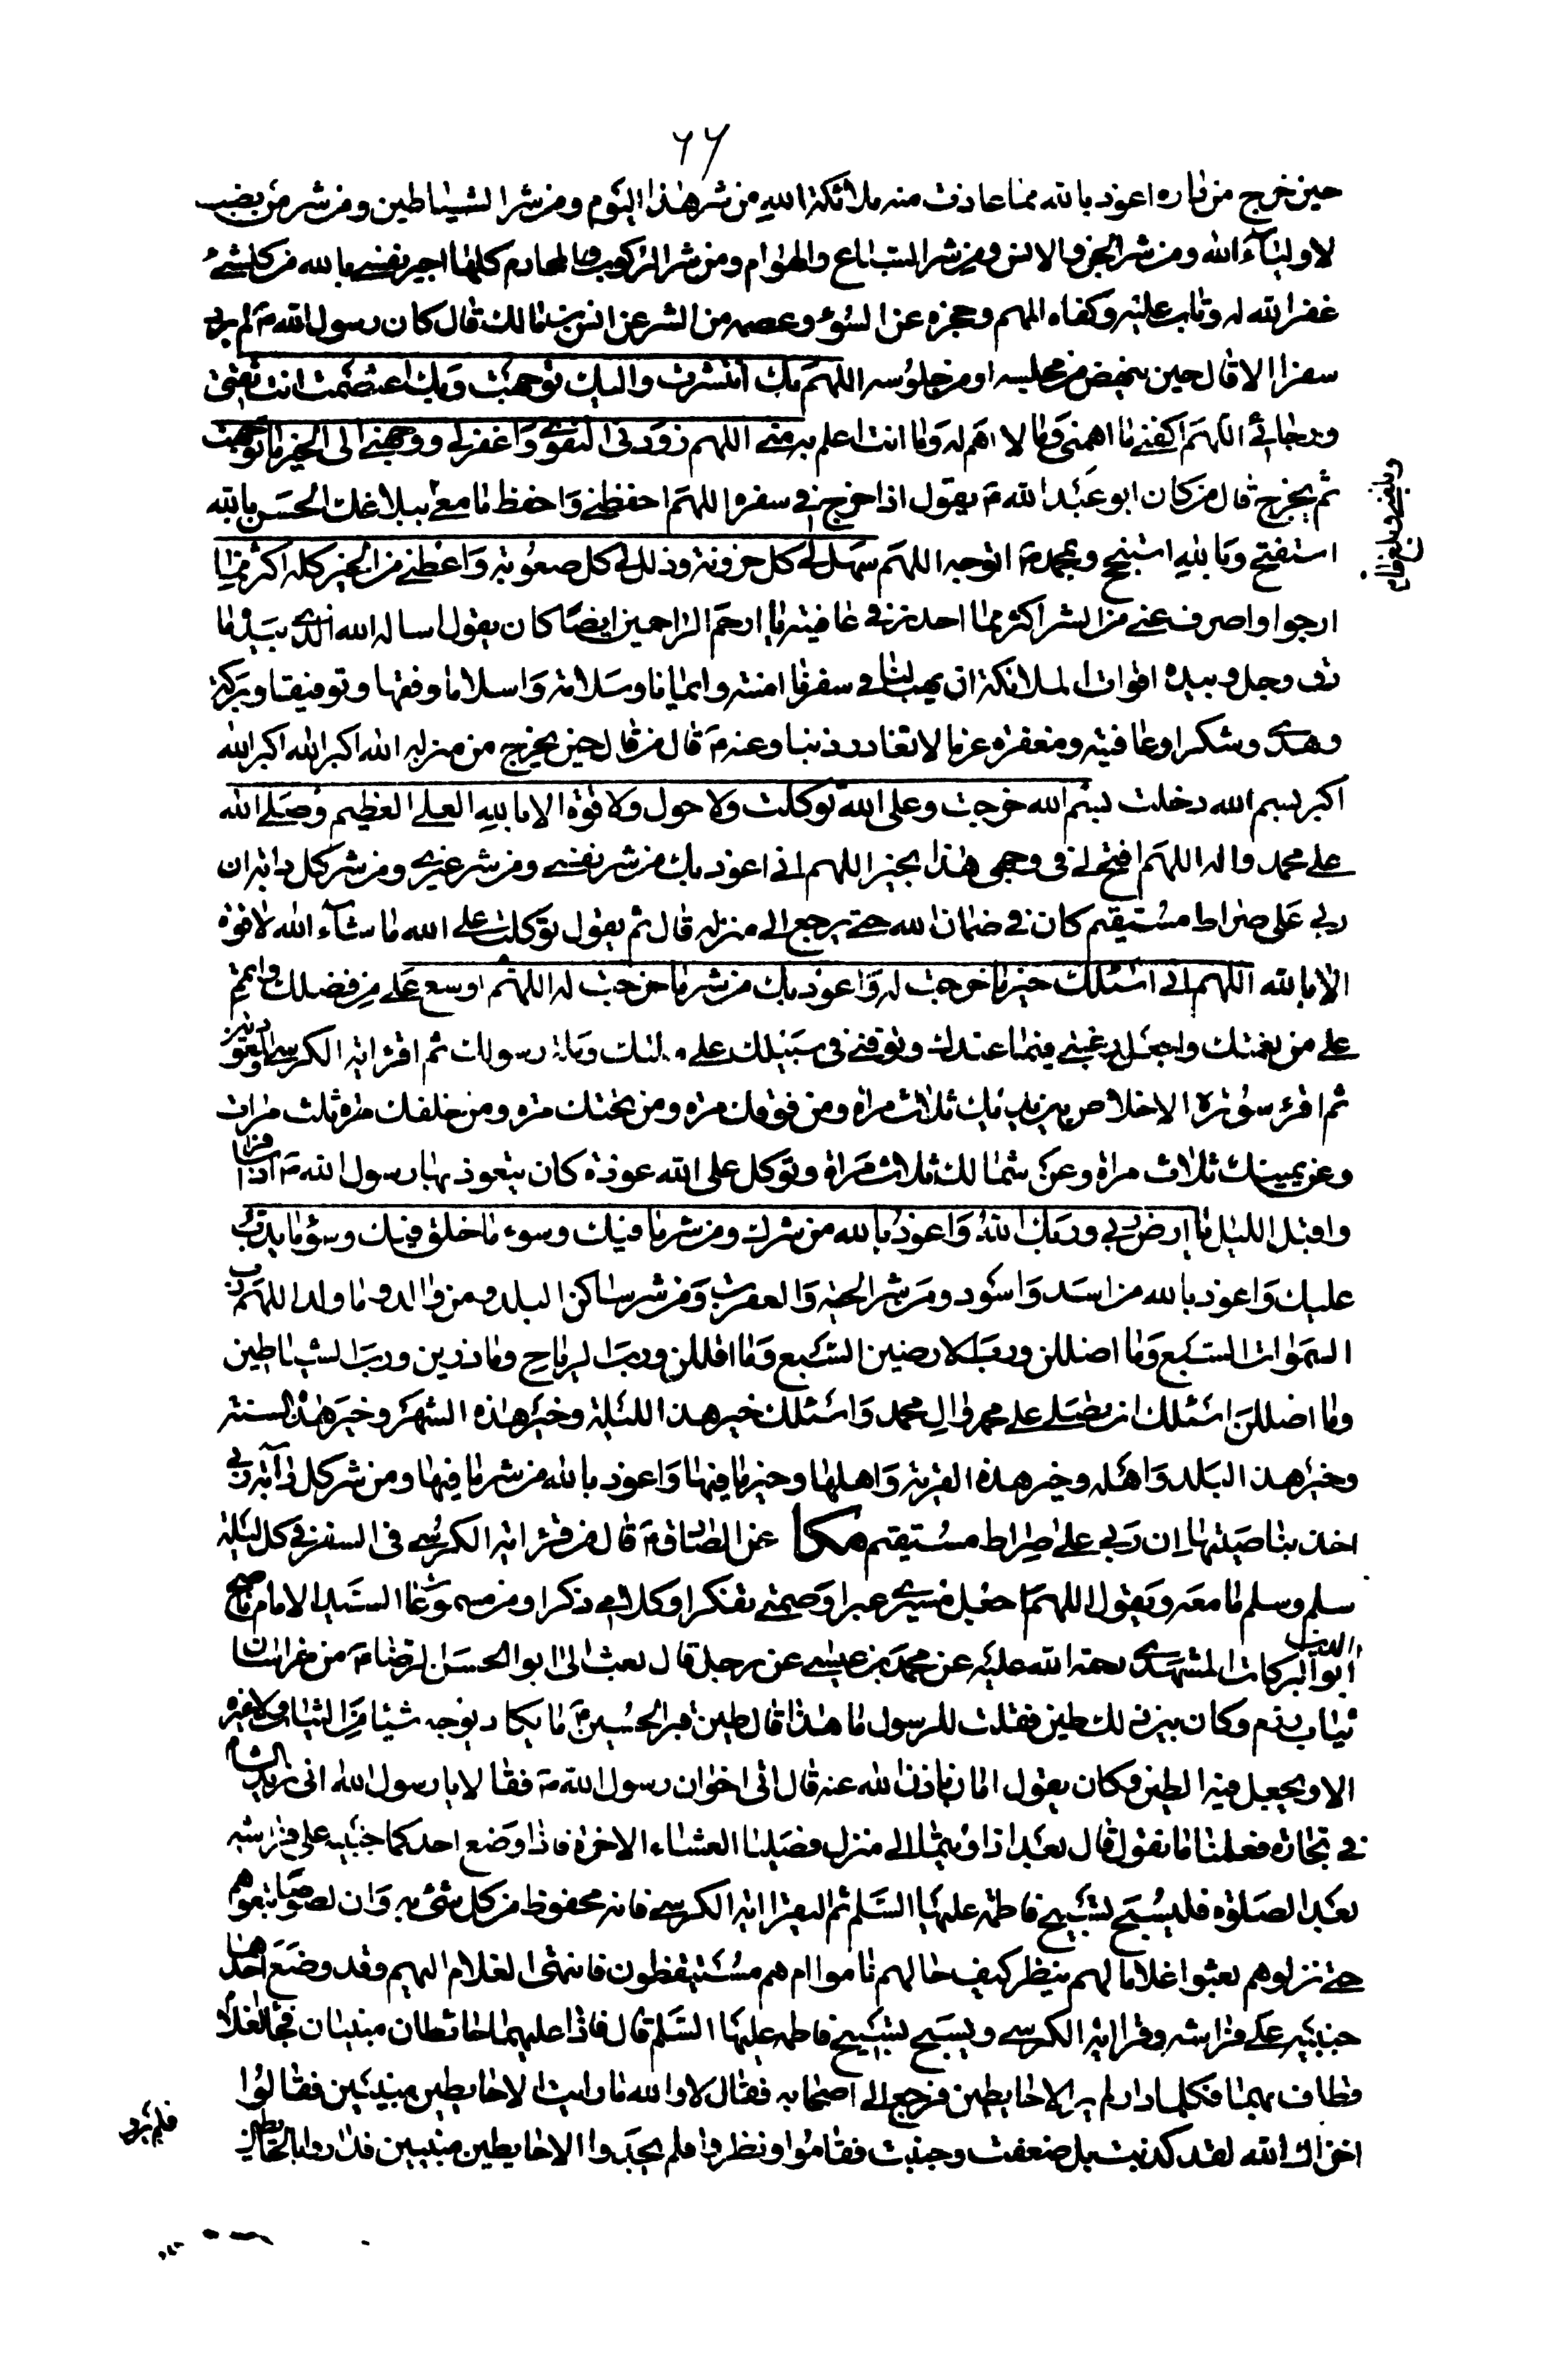 ٦٦
حين خرج من داره اعوذ بالله مما عاذت منه ملائكة الله من شر هذا اليوم ومن شر الشياطين ومن شر من نصب
لاولياء الله ومن شر الجن والانس ومن شر السباع والهوام ومن شر الركوب المحارم كلها اجير نفسى بالله من كل شئ
غفر الله له وتاب عليه وكفاه المهم وحجزه عن السوء وعصمه من الشر عن انس بن مالك قال كان رسول الله ص لم يرد
سفرا الا قال حين ينهض من مجلسه او من جلوسه اللهم بك انتشرت واليك توجهت وبك اعتصمت انت ثقتى
ورجائى اللهم اكفنى ما اهمنى وما لا اهم له وما انت اعلم به منى اللهم زودنى التقوى واغفر لى ووجهنى الى الخير ما توجهت
ثم يخرج قال من كان ابو عبد الله ع يقول اذا خرج فى سفره اللهم احفظنى واحفظ ما معى ببلاغك الحسن بالله
وبلغنى وبلغ ما معى
استفتح وبالله استنجح وبمحمد ص اتوجه اللهم سهل لى كل حزونة وذلل لى كل صعوبة واعطنى من الخير كله اكثر مما
ارجوا واصرف عنى من الشر اكثر مما احذر فى عافية يا ارحم الراحمين ايضا كان يقول اسال الله الذى بيده ما
دق وجل وبيده اقوات الملائكة ان يهب لنا فى سفرنا امنة وايمانا وسلامة واسلاما وفقها وتوفيقا وبركة
وهدى وشكرا وعافية ومغفرة عزما لا تغادر ذنبا وعنه ع قال من قال حين يخرج من منزله الله اكبر الله اكبر الله
اكبر بسم الله دخلت بسم الله خرجت وعلى الله توكلت ولا حول ولا قوة الا بالله العلى العظيم وصلى الله
على محمد واله اللهم افتح لى فى وجهى هذا بخير اللهم انى اعوذ بك من شر نفسى ومن شر غيرى ومن شر كل دابة ان
ربى على صراط مستقيم كان فى ضمان الله حتى يرجع الى منزله قال ثم يقول توكلت على الله ما شاء الله لا قوة
الا بالله اللهم انى اسئلك خير ما خرجت له واعوذ بك من شر ما خرجت له اللهم اوسع على من فضلك واتمم
على من نعمتك واجعل رغبتى فيما عندك وتوفنى فى سبيلك على ملتك وملة رسولك ثم اقرء اية الكرسى والمعوذتين
ثم اقرء سورة الاخلاص بين يديك ثلاث مراة ومن فوقك مرة ومن تحتك مرة ومن خلفك مرة ثلث مرات
وعن يمينك ثلاث مراة وعن شمالك ثلاث مراة وتوكل على الله عوذة كان يتعوذ بها رسول الله ص اذا
واقبل الليل يا ارض ربى وربك الله واعوذ بالله من شرك ومن شر ما فيك وسوء ما خلق فيك وسوء ما يدب
عليك واعوذ بالله من اسد واسود ومن شر الحية والعقرب ومن شر ساكن البلد ومن والد وما ولد اللهم رب
السموات السبع وما اضللن ورب الارضين السبع وما اقللن ورب الرياح وما ذرين ورب الشياطين
وما اضللن اسئلك ان تصلى على محمد وال محمد واسئلك خير هذه الليلة وخير هذه الشهر وخير هذه السنة
وخير هذا البلد واهله وخير هذه القرية واهلها وخير ما فيها واعوذ بالله من شر ما فيها ومن شر كل دابة ربى
اخذ بناصيتها ان ربى على صراط مستقيم مكا عن الصادق ع قال من قرء اية الكرسى فى السفر فى كل ليلة
سلم وسلم ما معه ويقول اللهم اجعل مسيرى عبرا وصمتى تفكرا وكلامى ذكرا ومن مسموعا السيد الامام ناصح الدين
ابو البركات المشهدى رحمة الله عليه عن محمد بن عيسى عن رجل قال بعث الى ابو الحسن الرضا ع من خراسان
ثياب رزم وكان بين ذلك طين فقلت للرسول ما هذا قال طين قبر الحسين ع ما يكاد يوجه شيئا من الثياب ولا غيره
الا ويجعل فيه الطين وكان يقول امان باذن الله عنه قال اتى اخوان رسول الله ص فقالا يا رسول الله انى نريد الشام
فى تجارة فعلمنا ما نقول قال بعد اذا اويتما الى منزل فصليتا العشاء الاخرة فاذا وضع احدكما جنبيه على فراشه
بعد الصلوة فليسبح تسبيح فاطمة عليها السلم ثم ليقرا اية الكرسى فانه محفوظ من كل شئ وان لصوصا تبعوهم
حتى نزلوهم بعثوا غلاما لهم ينظر كيف حالهم ناموا ام هم مستيقظون فانتهى الغلام اليهم وقد وضع احدهما
جنبيه على فراشه وقرا اية الكرسى ويسبح تسبيح فاطمة عليها السلم قال فاذا عليهما حائطان مبنيان فجا الغلام
وطاف بهما فكلما دار لم ير الا حايطين فرجع الى اصحابه فقال لا والله ما رايت الا حايطين مبنيين فقالوا
اخزاك الله لقد كذبت بل ضعفت وجبنت فقاموا ونظروا فلم يجدوا الا حايطين مبنيين فداروا بالحايطين
فلم يرو